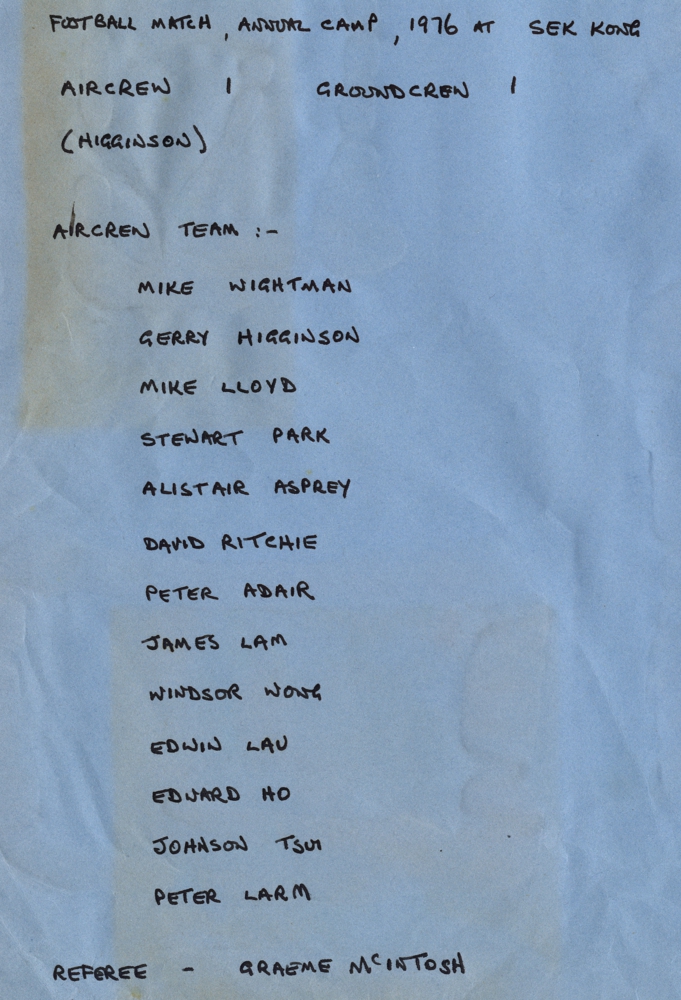 FOOTBALL MATCH, ANNUAL CAMP, 1976 AT SEK KONG
AIRCREW 1 GROUNDCREW 1
(HIGGINSON)
AIRCREW TEAM :-
MIKE WIGHTMAN
GERRY HIGGINSON
MIKE LLOYD
STEWART PARK
ALISTAIR ASPREY
DAVID RITCHIE
PETER ADAIR
JAMES LAM
WINDSOR WONG
EDWIN LAU
EDWARD HO
JOHNSON TSUI
PETER LARM
REFEREE - GRAEME McINTOSH